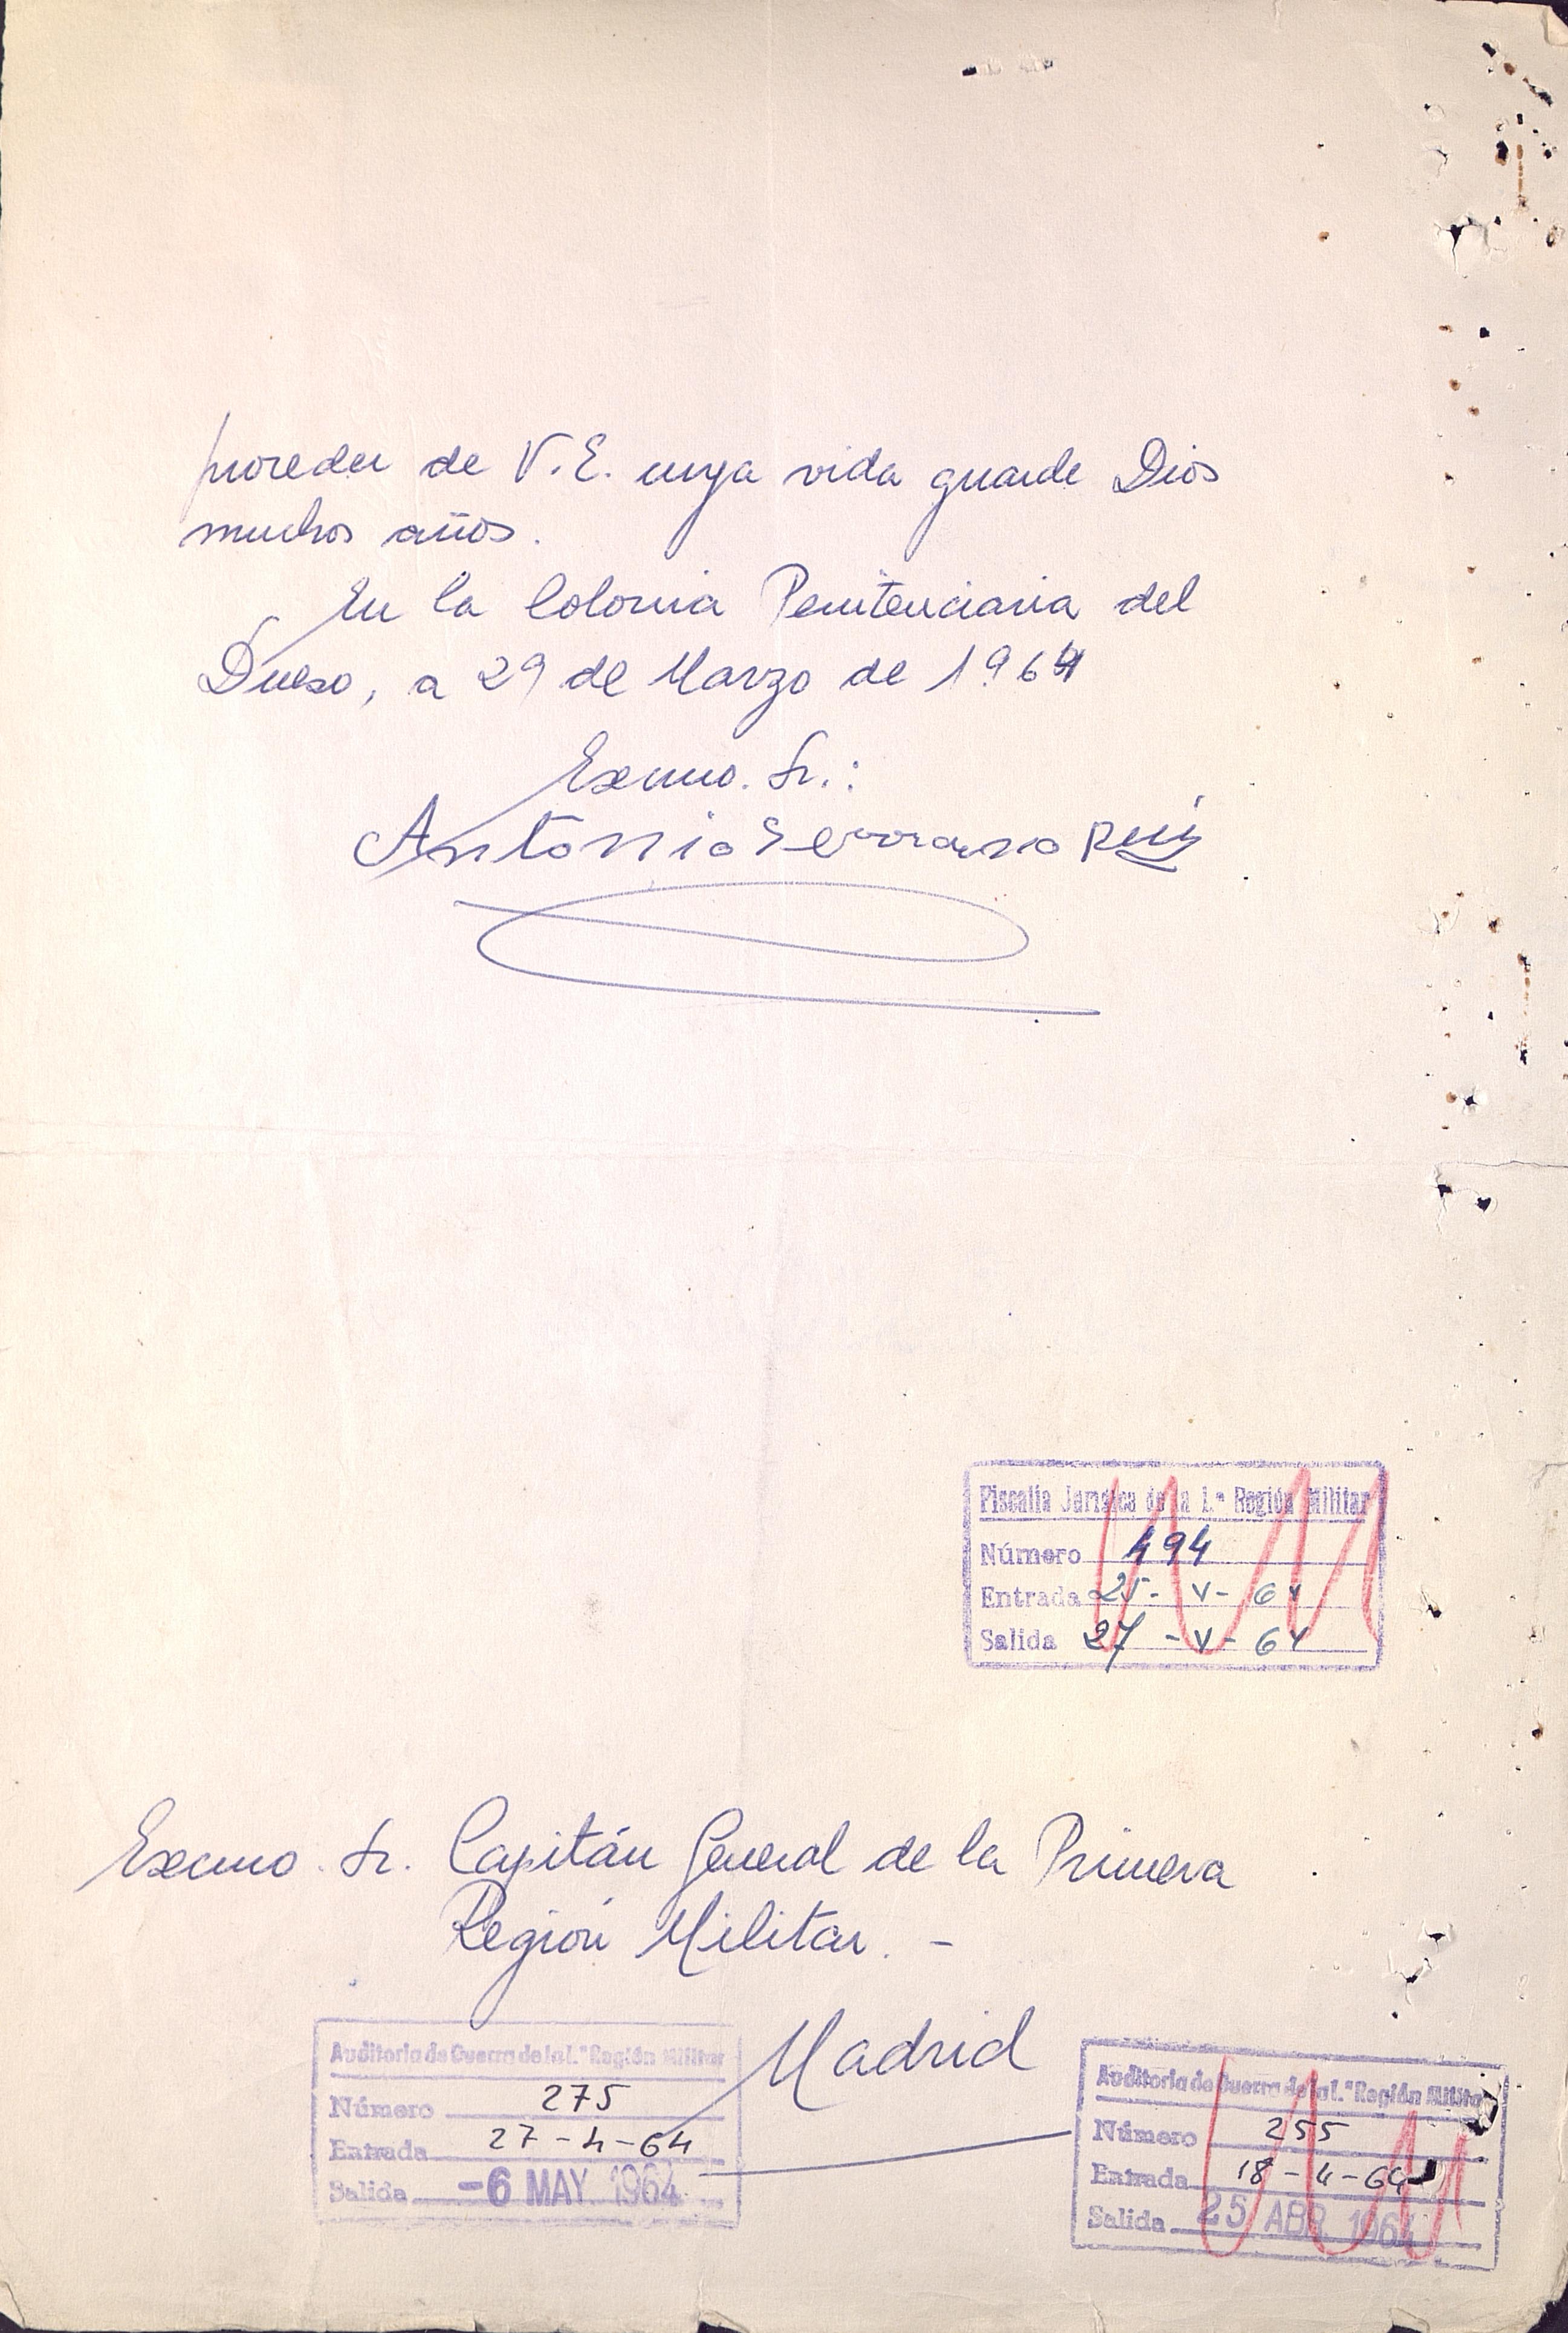 proceder de V.E. cuya vida guarde Dios
muchos años.
En la Colonia Penitenciaria del
Dueso, a 29 de Marzo de 1964
Excmo. Sr.:
Antonio Serrano Ruiz
Fiscalía Jurídica de la 1.ª Región Militar
Número 494
Entrada 25-V-64
Salida 27-V-64
Excmo. Sr. Capitán General de la Primera
Región Militar.-
Madrid
Auditoria de Guerra de la 1.ª Región Militar
Número 275
Entrada 27-4-64
Salida -6 MAY 1964
Auditoria de Guerra de la 1.ª Región Militar
Número 255
Entrada 18-4-64
Salida 25 ABR 1964